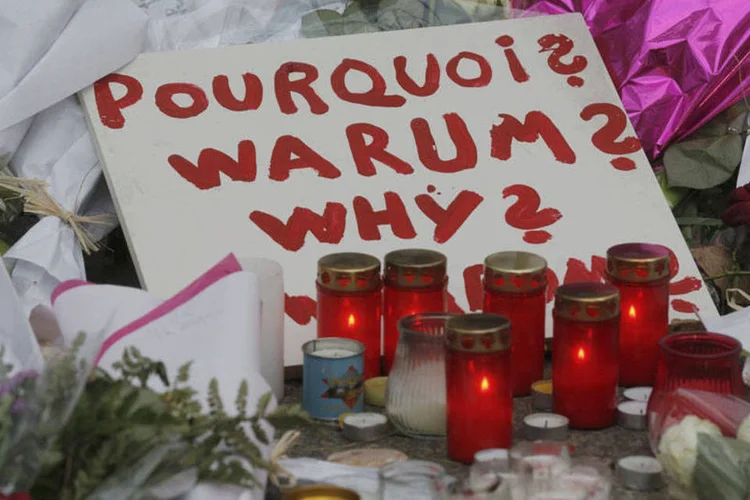 POURQUOi?
WARUM?
WHY?